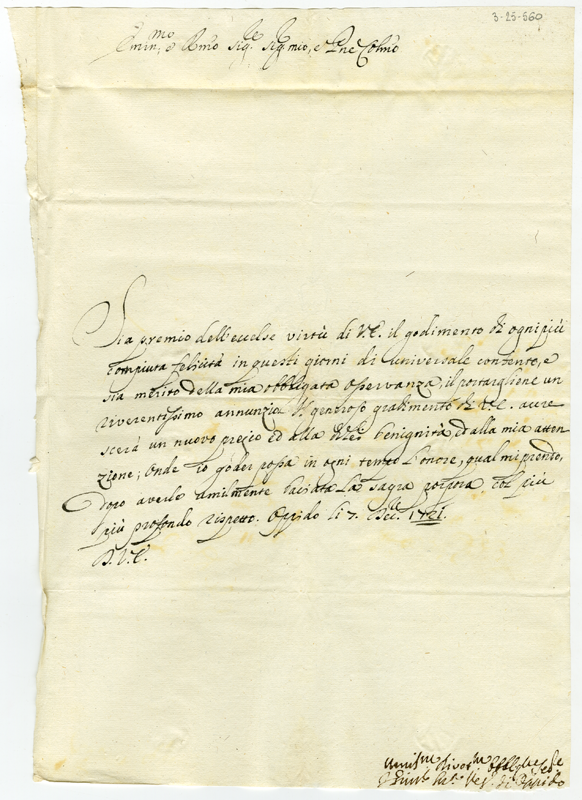 3-25-560
Emin.mo e Rmo Sig.re Sig.r mio, e Pne Colmo
Sia premio dell'eccelse virtù di V.E. il godimento di ogni più
compiuta felicità in questi giorni di universale contento, e
sia merito della mia obbligata osservanza il portargliene un
riverentissimo annunzio. Il generoso gradimento di V.E. accre
scerà un nuovo pregio ed alla benignità, ed alla mia atten
zione; Onde io goder possa in ogni tempo l'onore, qual mi prendo,
dopo averle umilmente baciata la sagra porpora col più
più profondo rispetto. Oppido li 7. Dbre. 1721.
D.V.E.